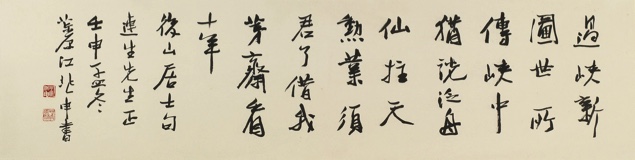 過峽新
圖世所
傳峽中
猶說泛舟
仙柱天
勲業須
君了借我
茅齋看
十年
後山居士句
連生先生正
壬申孟冬
茮原江兆申書